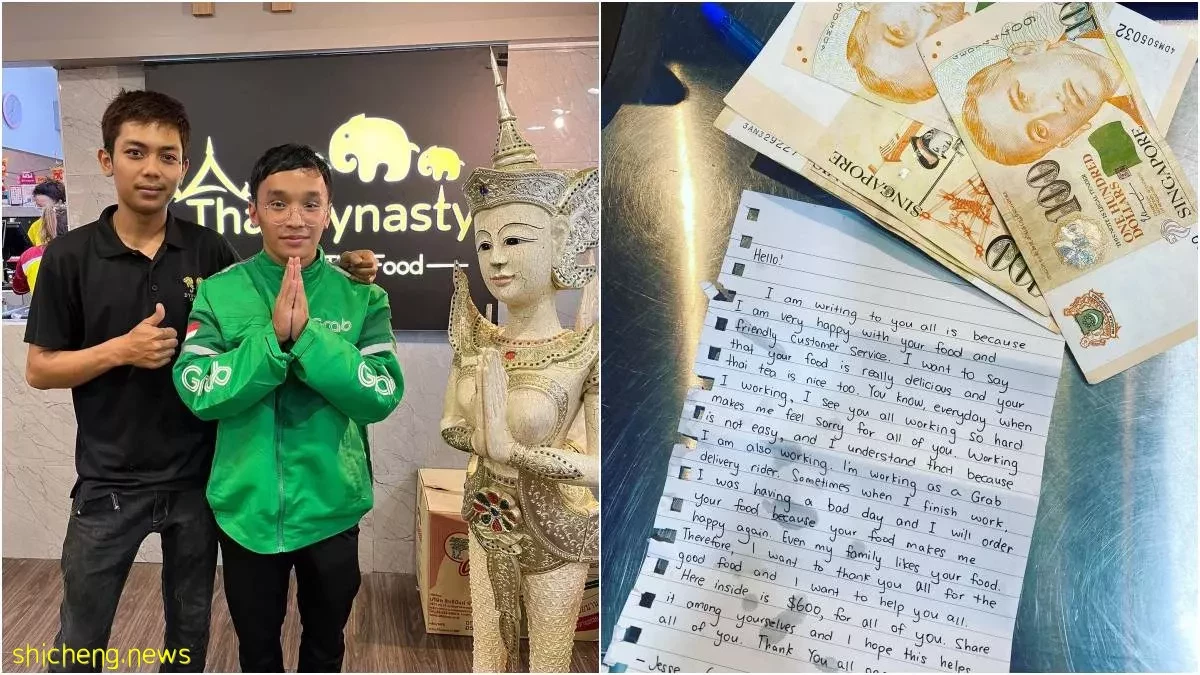 Thai Dynasty
Thai Food
Grab
Grab
Grab
shicheng.news
Hello!
I am writing to you all is because
I am very happy with your food and
friendly customer service. I want to say
that your food is really delicious and your
thai tea is nice too. You know, everyday when
I working, I see you all working so hard
makes me feel sorry for all of you. Working
is not easy, and I understand that because
I am also working. I'm working as a Grab
delivery rider. Sometimes when I finish work,
I was having a bad day and I will order
your food because your food makes me
happy again. Even my family likes your food.
Therefore, I want to thank you all for the
good food and I want to help you all.
Here inside is $600, for all of you. Share
it among yourselves and I hope this helps
all of you. Thank You all
- Jesse
SINGAPORE
100
ONE HUNDRED
DOLLARS
SINGAPORE
4DM505032